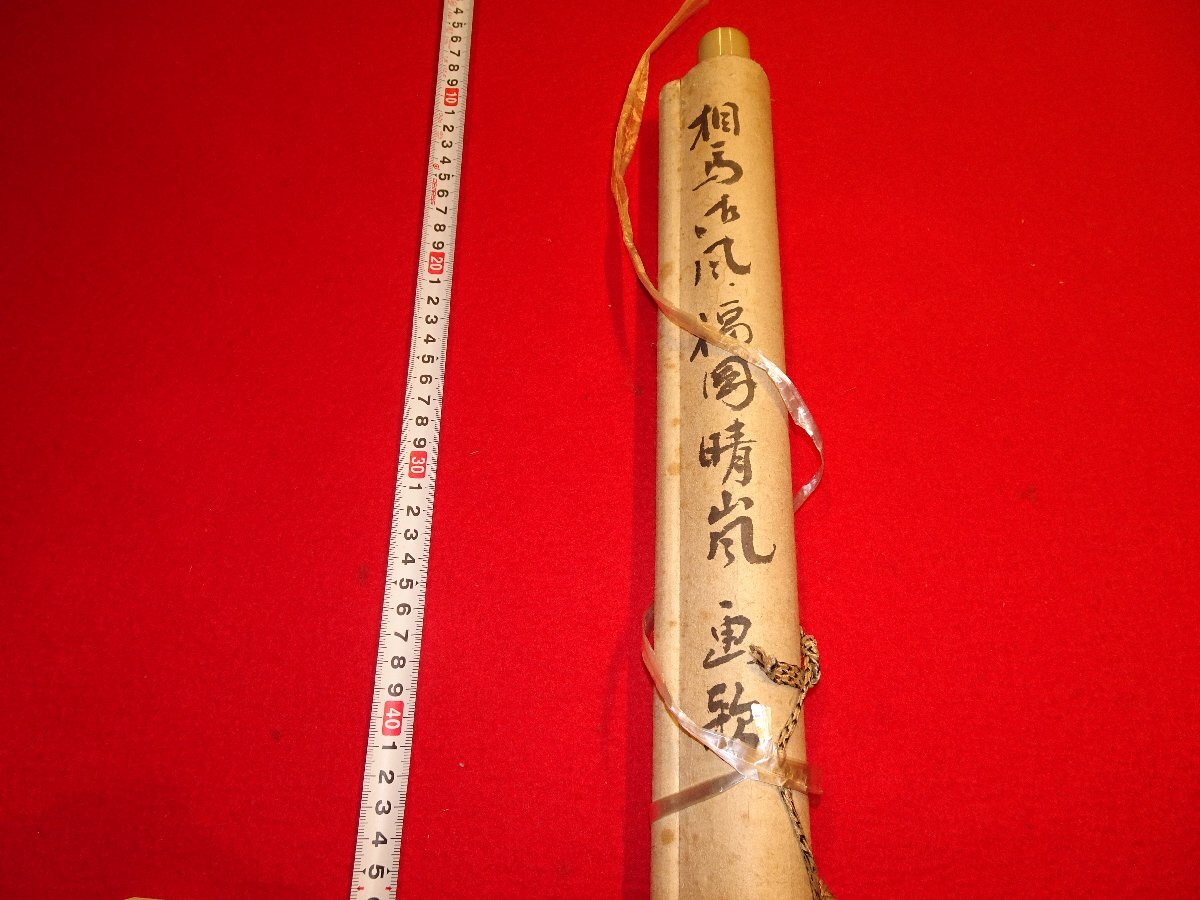 4 5 6 7 8 9 10 1 2 3 4 5 6 7 8 9 20 1 2 3 4 5 6 7 8 9 30 1 2 3 4 5 6 7 8 9 40 1 2 3 4 5
相馬御風・福岡晴嵐 画歌